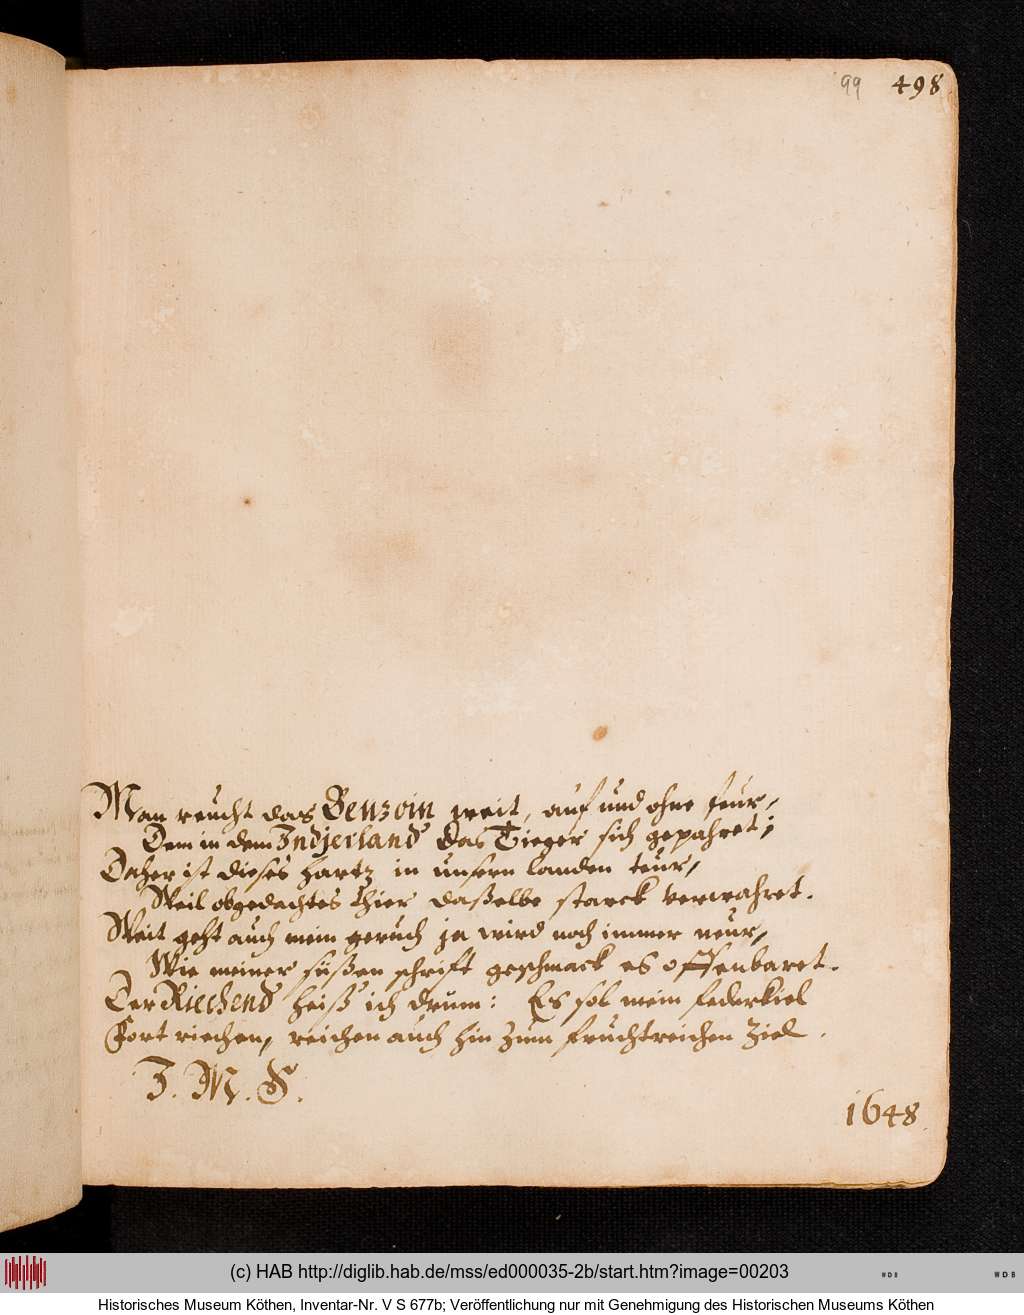 99 498
Man reucht das Benzoin weit, auf und ohne feur,
Dem in dem Indjerland das Tieger sich gepahret;
Daher ist dieses hartz in unsern landen teur,
Weil obgedachtes thier daßelbe starck verwahret.
Weit geht auch mein geruch ja wird noch immer neur,
Wie meiner süßen schrift geschmack es offenbaret.
Der Riechend heiß ich drum: Es sol mein federkiel
Fort riechen, reichen auch hin zum fruchtreichen ziel.
J. M. S.
1648
(c) HAB http://diglib.hab.de/mss/ed000035-2b/start.htm?image=00203
WDB
WDB
Historisches Museum Köthen, Inventar-Nr. V S 677b; Veröffentlichung nur mit Genehmigung des Historischen Museums Köthen